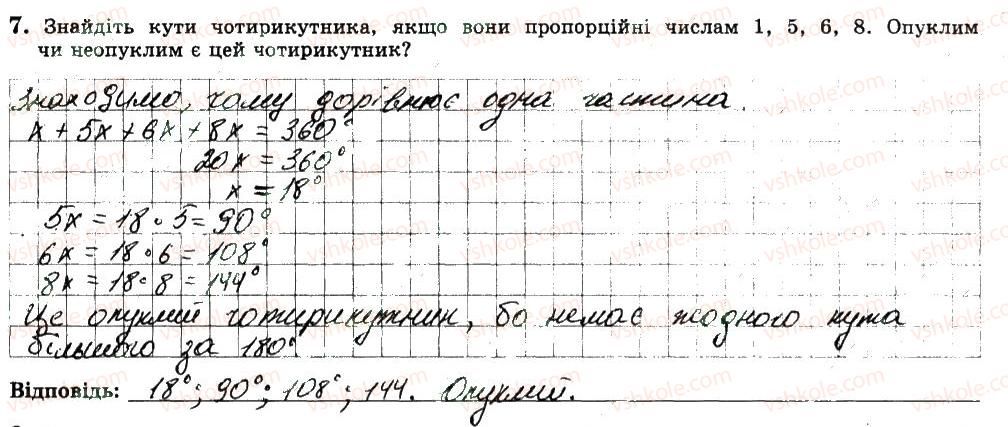 7. Знайдіть кути чотирикутника, якщо вони пропорційні числам 1, 5, 6, 8. Опуклим
чи неопуклим є цей чотирикутник?
Знаходимо, чому дорівнює одна частина.
x + 5x + 6x + 8x = 360°
20x = 360°
x = 18°
5x = 18 · 5 = 90°
6x = 18 · 6 = 108°
8x = 18 · 8 = 144°
Це опуклий чотирикутник, бо немає жодного кута
більшого за 180°
Відповідь: 18°; 90°; 108°; 144. Опуклий.
vshkole.com